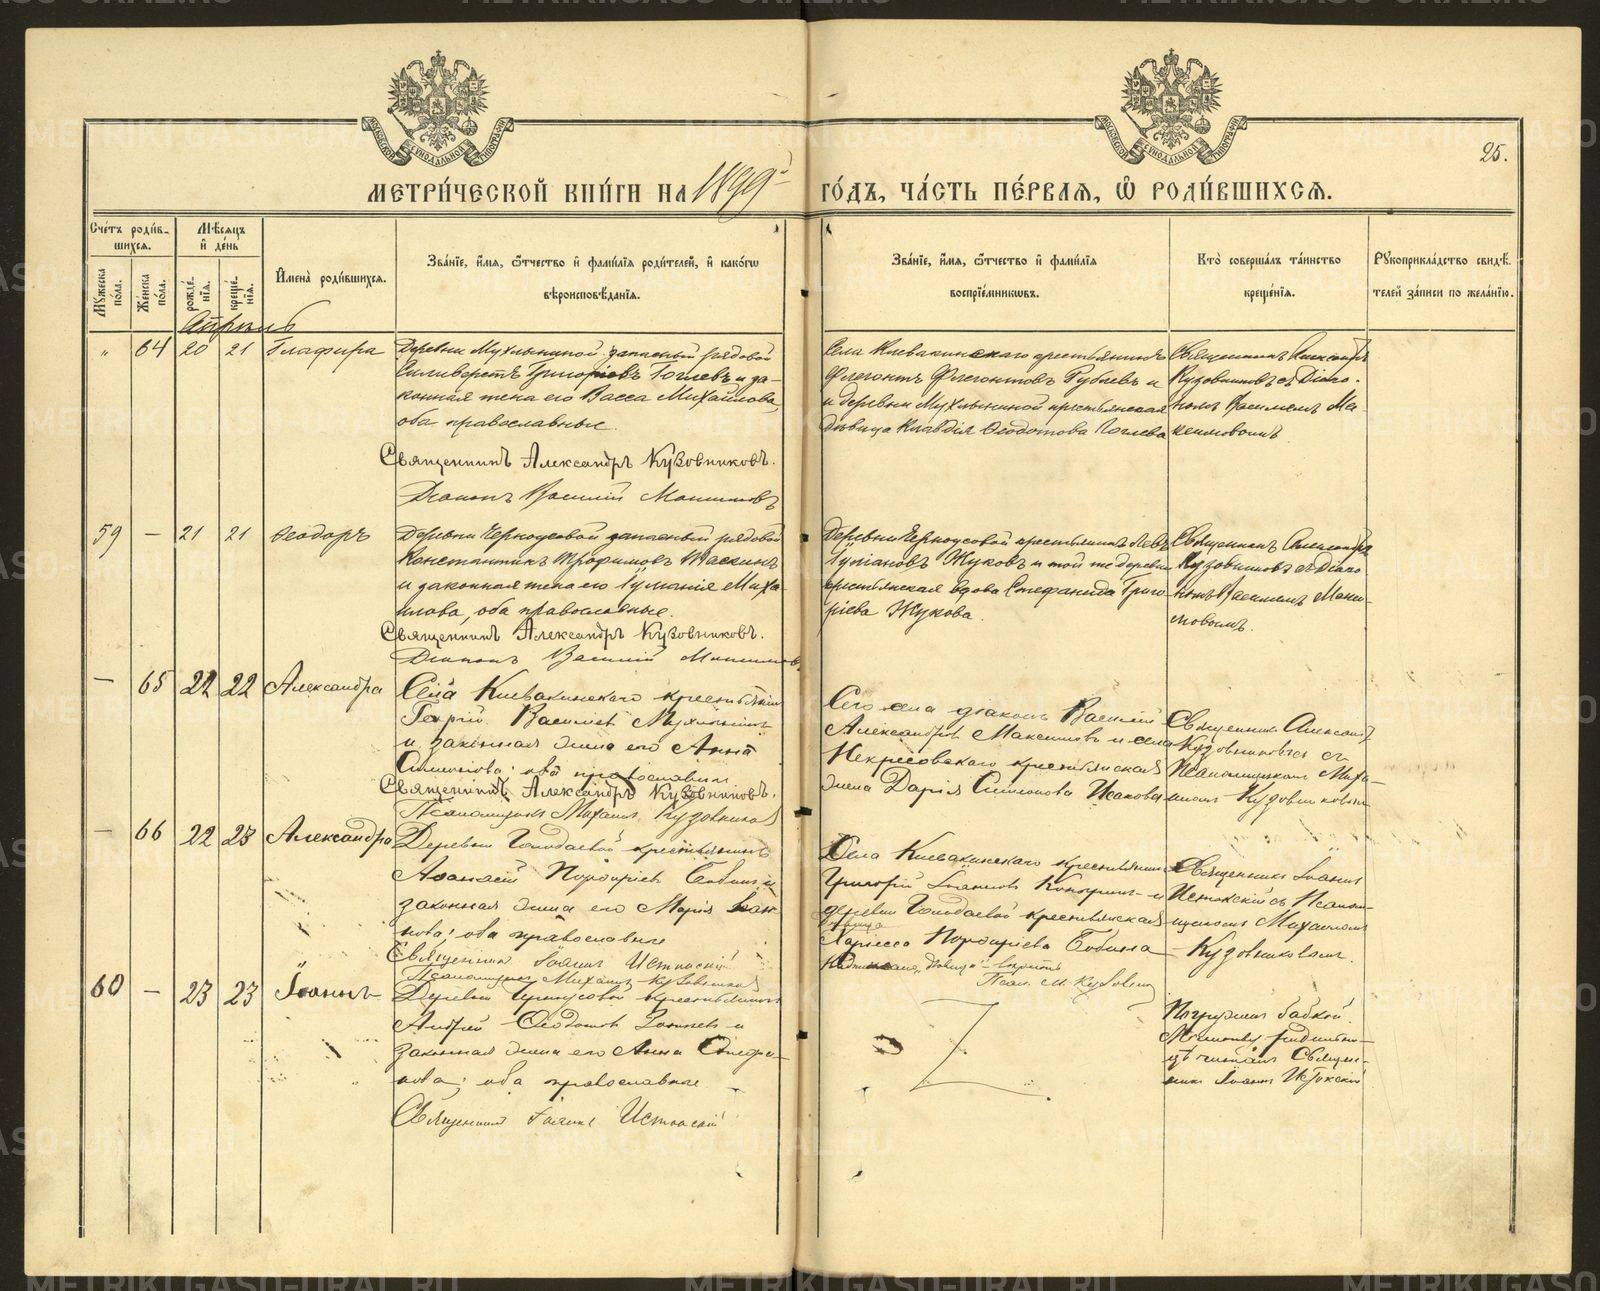 МЕТРИ́ЧЕСКОЙ КНИ́ГИ НА 1899й ГО́ДЪ, ЧА́СТЬ ПЕ́РВАЯ, Ѽ РОДИ́ВШИХСЯ.
25.
Сче́тъ роди́в-
шихся.
Мѣ́сяцъ
и҆ де́нь
Му́жеска по́ла.
Же́нска по́ла.
рожде́-
нїя.
креще́-
нїя.
И҆мена̀ роди́вшихся.
Зва́нїе, и҆́мя, ѻ҆́тчество и҆ фами́лїя роди́телей, и҆ како́гѡ
вѣроисповѣ́данїя.
Зва́нїе, и҆́мя, ѻ҆́тчество и҆ фами́лїя
воспрїе́мникѡвъ.
Кто̀ соверша́лъ та́инство
креще́нїя.
Рꙋкоприкла́дство свидѣ́-
телей за́писи по жела́нїю.
Апрѣль
" 64 20 21 Глафира
Деревни Мухлыниной запасный рядовой
Силиверстъ Григоріевъ Гоглевъ и за-
конная жена его Васса Михайлова,
оба православные.
Священникъ Александръ Кузовниковъ.
Діаконъ Василій Максимовъ
Села Клевакинскаго крестьянинъ
Флегонтъ Флегонтовъ Рублевъ и
и деревни Мухлыниной крестьянская
дѣвица Клавдія Ѳеодотова Гоглева
Священникъ Александръ
Кузовниковъ съ Діако-
номъ Василіемъ Ма-
ксимовымъ
59 — 21 21 Ѳеодоръ
Деревни Черноусовой запасный рядовой
Константинъ Трофимовъ
и законная жена его Миха-
илова, оба православные.
Священникъ Александръ Кузовниковъ.
Діаконъ Василій Максимовъ
Деревни Черноусовой крестьянинъ
Жуковъ и той же деревни
крестьянская вдова Стефанида Григо-
ріева Жукова.
Священникъ Александръ
Кузовниковъ съ Діако-
номъ Василіемъ Макси-
мовымъ.
— 65 22 22 Александра
Села Клевакинскаго крестьянинъ
Георгій Васильевъ Мухлынинъ
и законная жена его Анна
Симеонова; оба православные
Священникъ Александръ Кузовниковъ.
Псаломщикъ Михаилъ Кузовниковъ
Сего села діаконъ Василій
Александровъ Максимовъ и села
Некрасовскаго крестьянская
жена Дарія Симеонова Исакова
Священникъ Александръ
Кузовниковъ съ
Псаломщикомъ Миха-
иломъ Кузовниковымъ
— 66 22 23 Александра
Деревни Голодаевой крестьянинъ
Аѳанасій Порфиріевъ Бабинъ и
законная жена его Марія Іоан-
нова; оба православные
Священникъ Іоаннъ Истокскій
Псаломщикъ Михаилъ Кузовниковъ
Села Клевакинскаго крестьянинъ
Григорій Іоанновъ и
деревни Голодаевой крестьянская
дѣвица
Порфиріева Бабина
Надписано „дѣвица" вѣрно
Псал. М. Кузовник
Священникъ Іоаннъ
Истокскій съ Псалом-
щикомъ Михаиломъ
Кузовниковымъ.
60 — 23 23 Іоаннъ
Деревни Черноусовой крестьянинъ
Андрей Ѳеодотовъ и
законная жена его Анна Стефа-
нова; оба православные
Священникъ Іоаннъ Истокскій
Погруженъ бабкой.
Молитву родитель-
ницѣ читалъ Священ-
никъ Іоаннъ Истокскій
METRIKI.GASO-URAL.RU